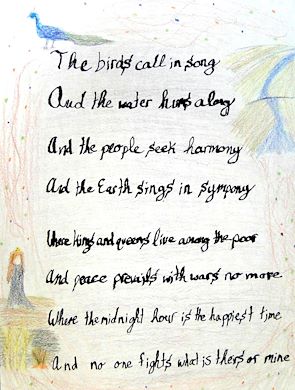 The birds call in song
And the water hums along
And the people seek harmony
And the Earth sings in sympony
Where kings and queens live among the poor
And peace prevails with wars no more
Where the midnight hour is the happiest time
And no one fights what is thers or mine